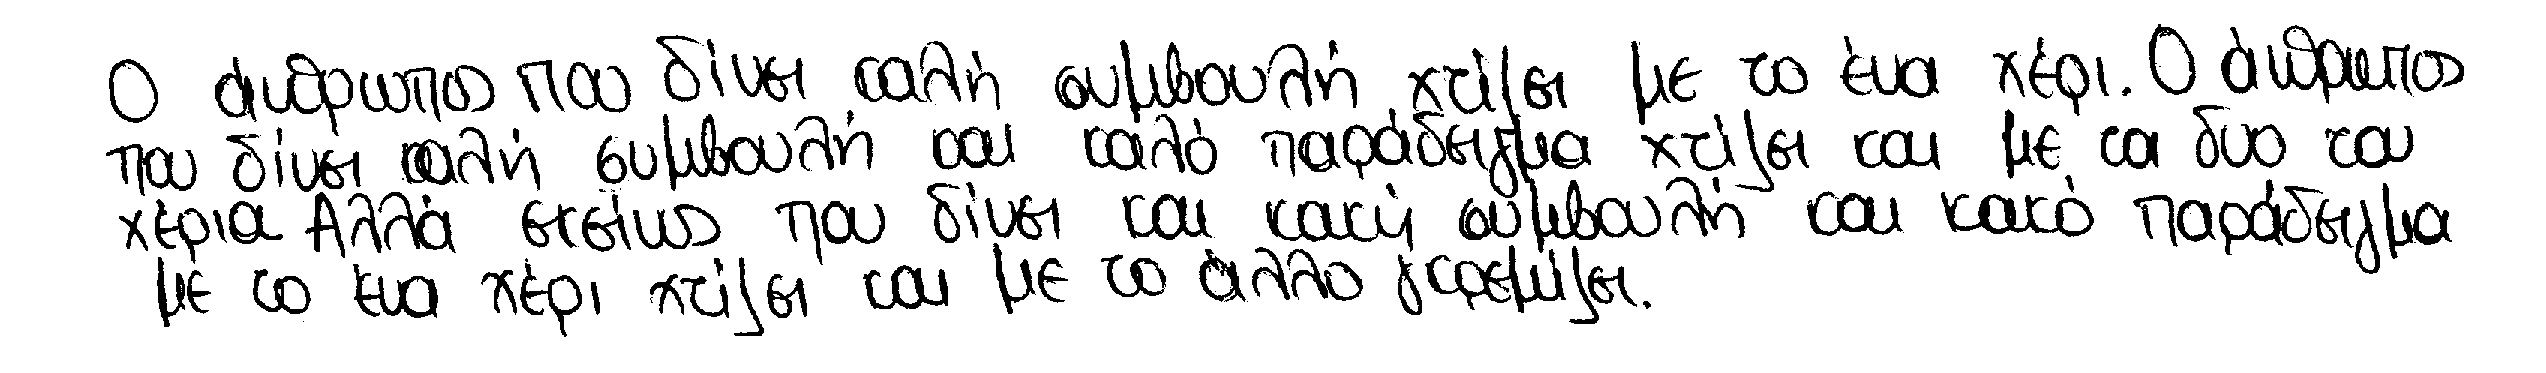 Ο άνθρωπος που δίνει καλή συμβουλή χτίζει με το ένα χέρι. Ο άνθρωπος
που δίνει καλή συμβουλή και καλό παράδειγμα χτίζει και με τα δυο του
χέρια Αλλά εκείνος που δίνει και κακή συμβουλή και κακό παράδειγμα
με το ένα χέρι χτίζει και με το άλλο γκρεμίζει.